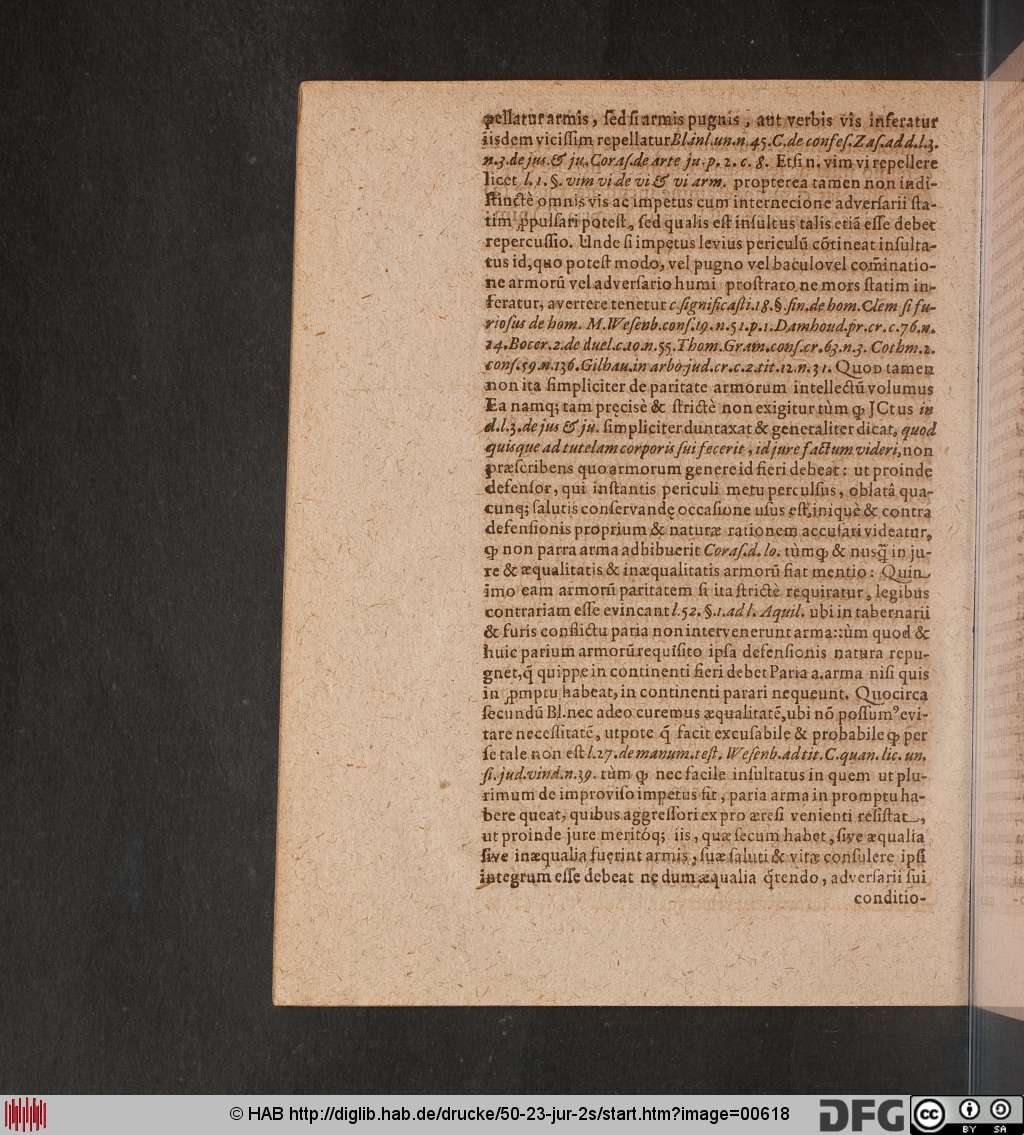 pellatur armis, sed si armis pugnis, aut verbis vis inferatur
iisdem vicissim repellatur Bl.in l.un.n.45.C.de confes.Zas.ad d.l.3.
n.3.de jus.& ju.Coras.de arte ju.p.2.c.8. Etsi n. vim vi repellere
licet l.1.§.vim vi de vi & vi arm. propterea tamen non indi-
stinctè omnis vis ac impetus cum internecione adversarii sta-
tim ꝓpulsari potest, sed qualis est insultus talis etiã esse debet
repercussio. Unde si impetus levius periculũ cõtineat insulta-
tus id, quo potest modo, vel pugno vel baculo vel com̃inatio-
ne armorũ vel adversario humi prostrato ne mors statim in-
feratur, avertere tenetur c.significasti.18.§.fin.de hom.Clem si fu-
riosus de hom. M.Wesenb.cons.19.n.51.p.1.Damhoud.pr.cr.c.76.n.
14.Bocer.2.de duel.c.10.n.55.Thom.Gram.cons.cr.63.n.3. Cothm.1.
cons.59.n.136.Gilhau.in arbo.jud.cr.c.2.tit.12.n.31. Quod tamen
non ita simpliciter de paritate armorum intellectũ volumus
Ea namq; tam pręcisè & strictè non exigitur tùm ꝙ JCtus in
d.l.3.de jus & ju. simpliciter duntaxat & generaliter dicat, quod
quisque ad tutelam corporis sui fecerit, id jure factum videri, non
præscribens quo armorum genere id fieri debeat: ut proinde
defensor, qui instantis periculi metu perculsus, oblatâ qua-
cunq; salutis conservandę occasione usus est, iniquè & contra
defensionis proprium & naturæ rationem accusari videatur,
ꝙ non parra arma adhibuerit Coras.d.lo. tùm ꝙ & nusq̃ in ju-
re & æqualitatis & inæqualitatis armorũ fiat mentio: Quin
imo eam armorũ paritatem si ita strictè requiratur, legibus
contrariam esse evincant l.52.§.1.ad l.Aquil. ubi in tabernarii
& furis conflictu paria non intervenerunt arma: tùm quod &
huic parium armorũ requisito ipsa defensionis natura repu-
gnet, q̃ quippe in continenti fieri debet Paria a. arma nisi quis
in ꝓmptu habeat, in continenti parari nequeunt. Quocirca
secundũ Bl. nec adeo curemus æqualitatẽ, ubi nõ possumꝰ evi-
tare necessitatẽ, utpote q̃ facit excusabile & probabile ꝙ per
se tale non est l.27.de manum.test. Wesenb.ad tit.C.quan.lic.un.
si.jud.vind.n.39. tùm ꝙ nec facile insultatus in quem ut plu-
rimum de improviso impetus fit, paria arma in promptu ha-
bere queat, quibus aggressori ex pro æresi venienti resistat,
ut proinde jure meritóq; iis, quæ secum habet, sive æqualia
sive inæqualia fuerint armis, suæ saluti & vitæ consulere ipsi
integrum esse debeat ne dum æqualia q̃rendo, adversarii sui
conditio-
© HAB http://diglib.hab.de/drucke/50-23-jur-2s/start.htm?image=00618
DFG
cc
BY SA